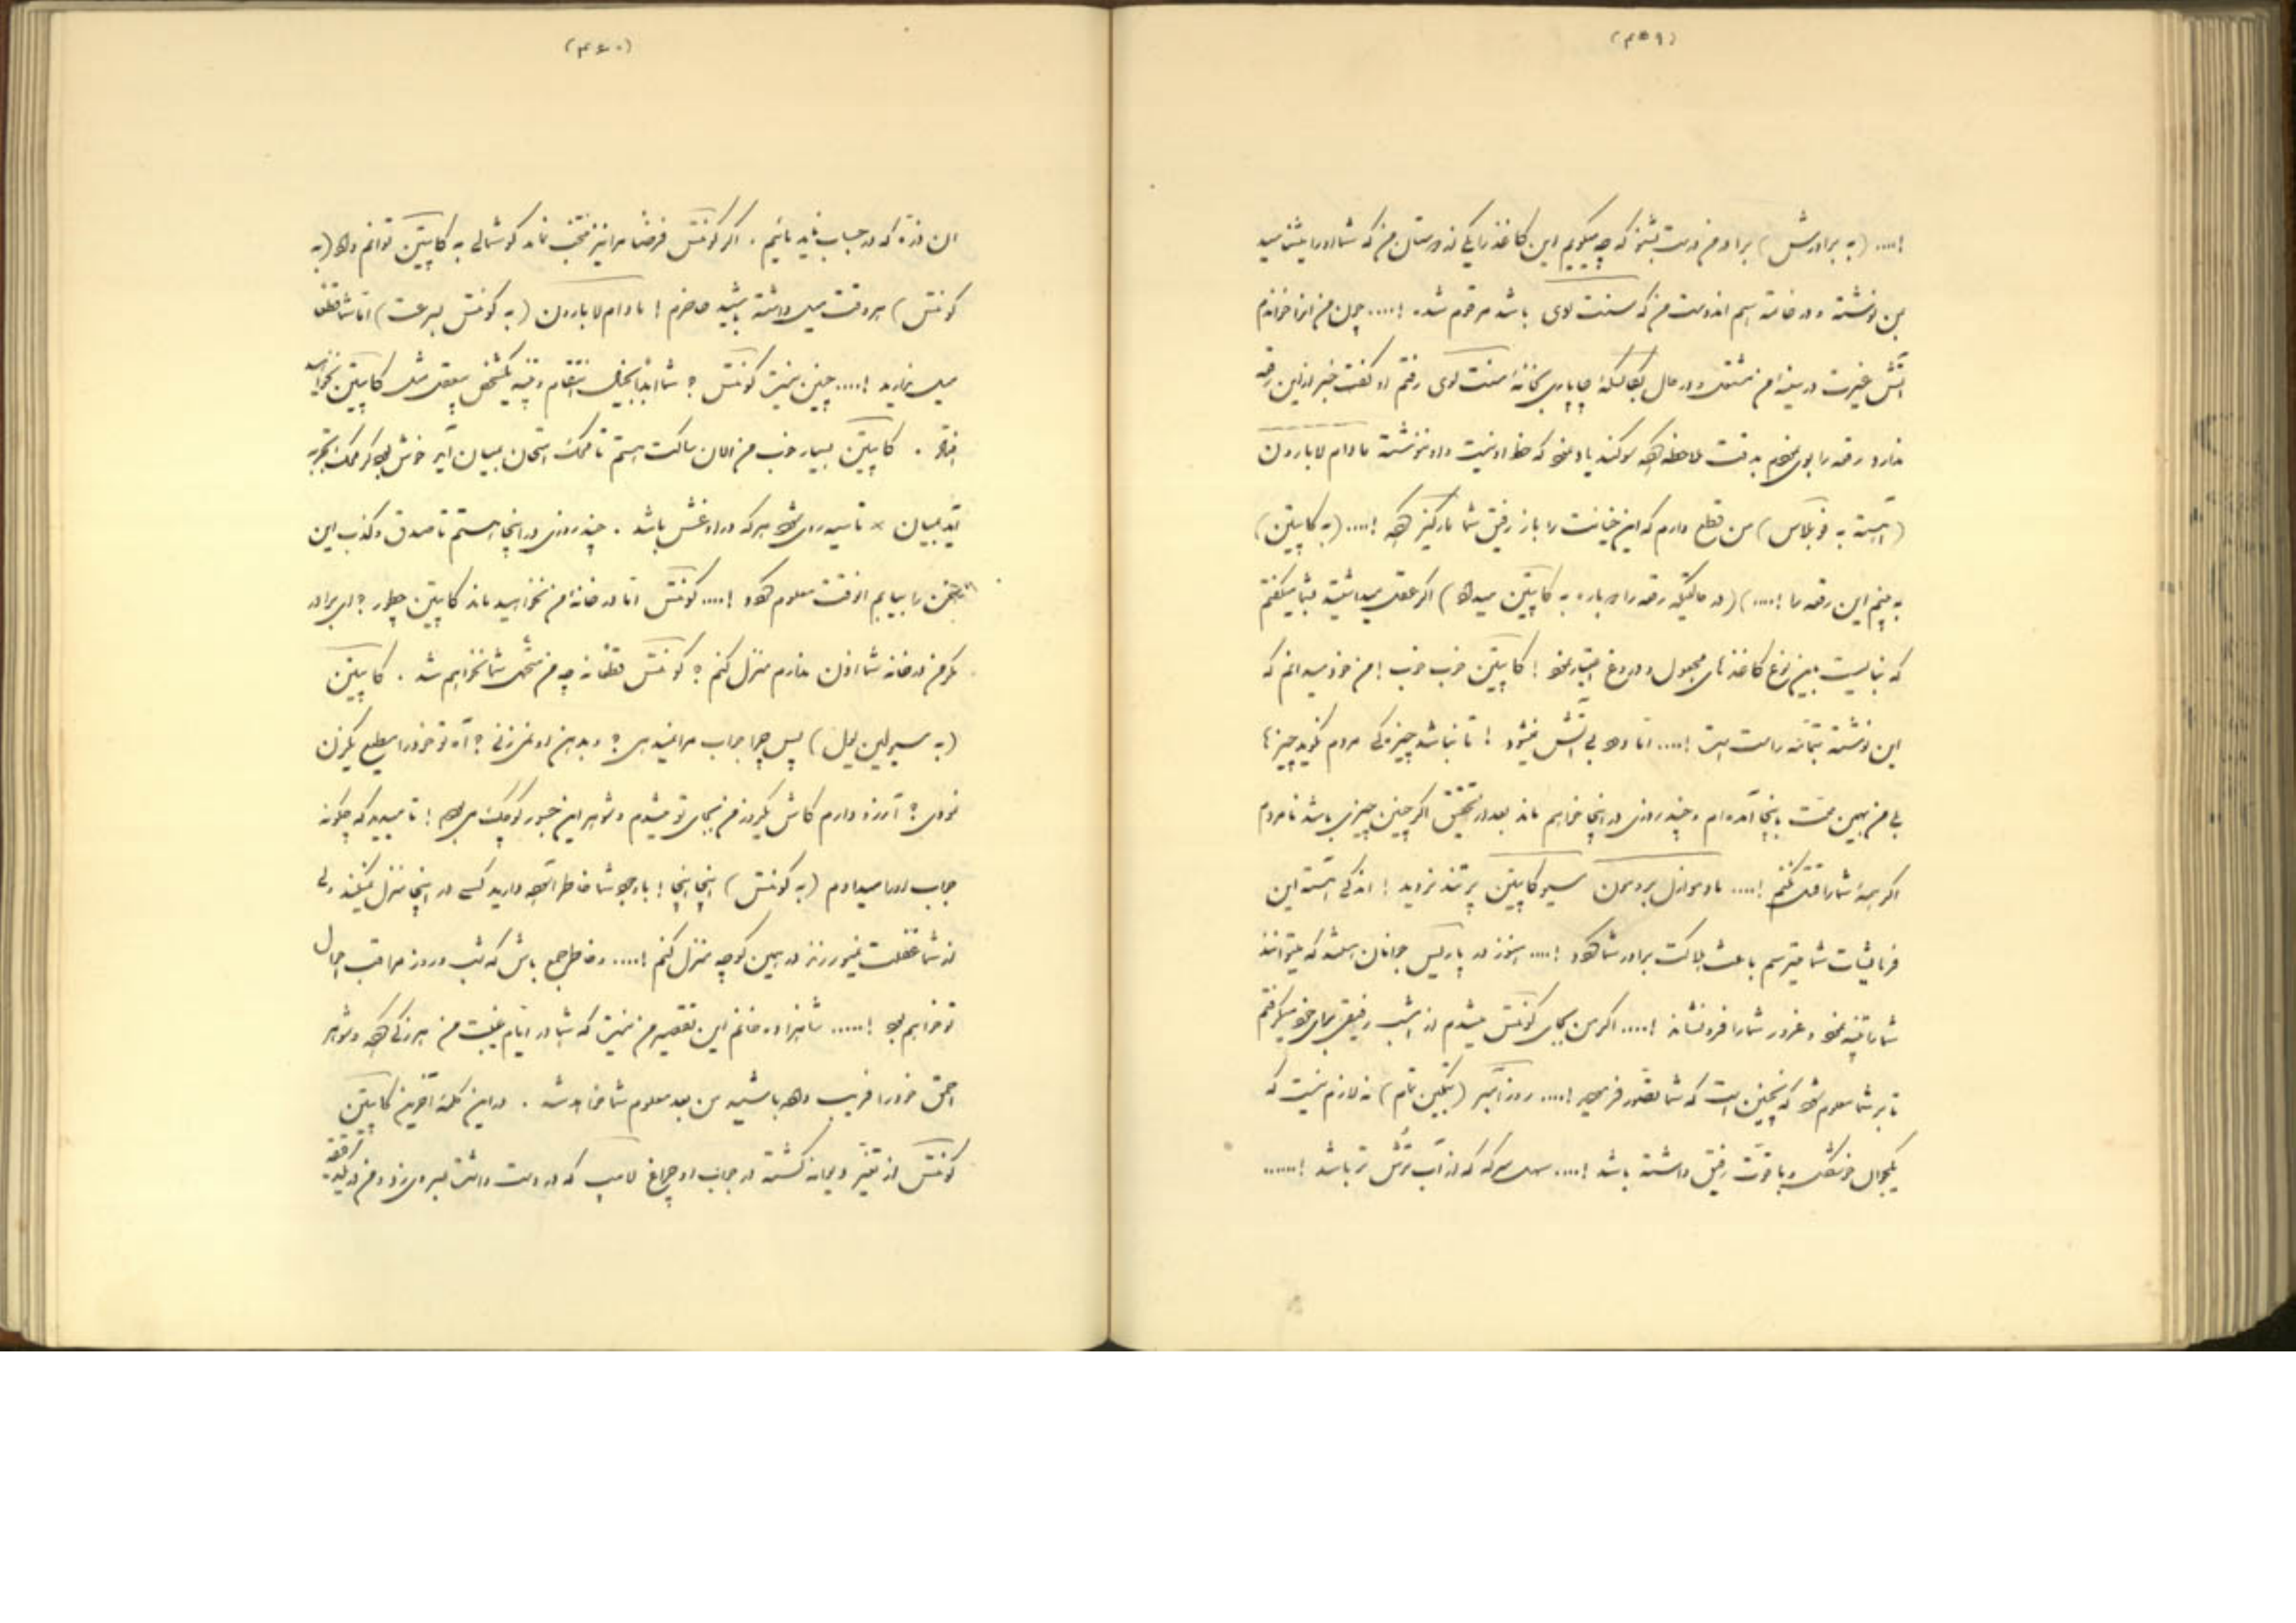 (۴۵۹)
!.... (به برادرش) برادر من درست بشنو که چه میگویم این کاغذ را یکی از دوستان من که شما او را میشناسید
بمن نوشته و در خاتمه اسم اندوست من که سنت لوی باشد مرقوم شده !.... چون من انرا خواندم
آتش غیرت در سینه‌ام مشتعل و در حال بکالسکهٔ چاپاری بخانهٔ سنت لوی رفتم او گفت خبر از این رقعه
ندارد رقعه را بوی نمودم بدقت ملاحظه کرده سوگند یاد نمود که خط او نیست و او ننوشته مادام لابارون
(آهسته به فوبلاس) من قطع دارم که این خیانت را باز رفیق شما مارکیز کرده !.... (به کاپیتن)
به بینم این رقعه را !....) (در حالتیکه رقعه را دوباره به کاپیتن میدهد) اگر عقل میداشتید بشما میگفتم
که نبایست باین نوع کاغذهای مجهول و دروغ اعتبار نمود ! کاپیتن خوب خوب ! من خود میدانم که
این نوشته بتمامه راست است !.... اما دود بی آتش نمیشود ! تا نباشد چیزکی مردم نگوید چیزها
بلی من بهمین جهت باینجا آمده‌ام و چند روزی در اینجا خواهم ماند بعد از تحقیق اگر چنین چیزی باشد نامردم
اگر همهٔ شما را قتل نکنم !.... مادموازل بردمون مسیو کاپیتن پر تند نروید ! اندکی آهسته این
فرمایشات شما میترسم باعث هلاکت برادر شما گردد !.... هنوز در پاریس جوانان هستند که میتوانند
شما را تنبیه نمود و غرور شما را فرو نشاند !.... اگر من بجای کونتس میشدم از امشب رفیقی برای خود میگرفتم
تا بر شما معلوم شود که نچنین است که شما تصور فرمودید !.... روزامبر (بتمکین تمام) نه لازم نیست که
یکجوان خوشگل و با قوت رفیق داشته باشد !.... سرکه که از آب ترش تر باشد !......
(۴۶۰)
ان وزه که در حساب نباید مائیم . اگر کونتس فرضاً مرا نیز منتخب نماید گوشمالی به کاپیتن توانم داد (به
کونتس) هر وقت میل داشته باشید حاضرم ! مادام لابارون (به کونتس بسرعت) اما شما قطعاً
میل ندارید !.... چنین نیست کونتس ؟ شما ابداً بخیال انتقام و تنبیه یکشخص بیعقل مثل کاپیتن نخواهید
افتاد . کاپیتن بسیار خوب من الان ساکت هستم تا محک امتحان بمیان آید خوش بود گر محک تجربه
آید بمیان × تا سیه روی شود هر که در او غش باشد . چند روزی در اینجا هستم تا صدق و کذب این
سخن را بیابم انوقت معلوم گردد !.... کونتس اما در خانهٔ من نخواهید ماند کاپیتن چطور ؟ ای برادر
مگر من در خانه شما اذن ندارم منزل کنم ؟ کونتس قطعا نه چه من متحمل شما نخواهم شد . کاپیتن
(به مسیو لین یول) پس چرا جواب مرا نمیدهی ؟ و بدهن او نمی‌زنی ؟ آه تو خود را مطیع یکزن
نمودی ؟ آرزو دارم کاش یکروز من بجای تو میشدم و شوهر این جسور کوچک می‌بودم ! تا میدید که چگونه
جواب او را میدادم (به کونتس) اینجا اینجا ! با وجود شما خاطر آسوده دارید کسی در اینجا منزل نمیکند ولی
از شما غفلت نمیورزند در همین کوچه منزل کنم !.... و خاطر جمع باش که شب و روز مراقب اعمال
تو خواهم بود !..... شاهزاده خانم این تقصیر من نیست که شما در ایام غیبت من هرزگی کرده و شوهر
احمق خود را فریب داده باشید من بعد معلوم شما خواهد شد . در این کلمهٔ آخرین کاپیتن
کونتس از تغیر دیوانه گشته در جواب او چراغ لامپ که در دست داشت بر روی زد و من در یکدقیقه